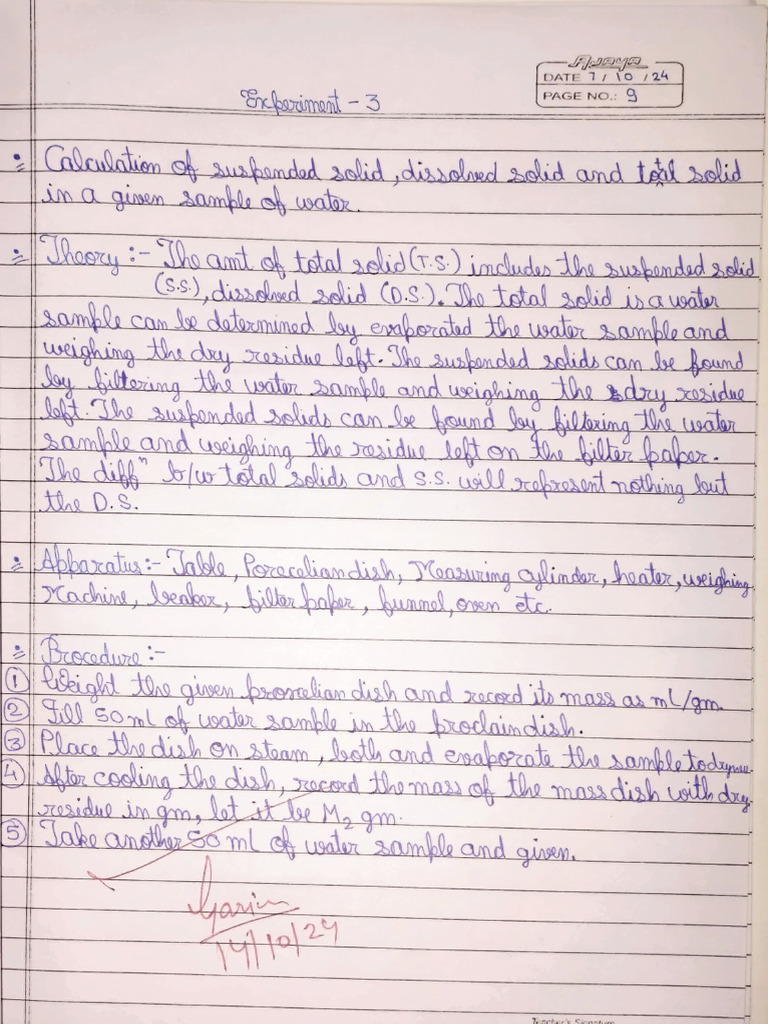 Ajaya
DATE 7/10/24
PAGE NO.: 9
Experiment - 3
Calculation of suspended solid, dissolved solid and total solid
in a given sample of water.
Theory :- The amt of total solid (T.S.) includes the suspended solid
(S.S.), dissolved solid (D.S.). The total solid is a water
sample can be determined by evaporated the water sample and
weighing the dry residue left. The suspended solids can be found
by filtering the water sample and weighing the dry residue
left. The suspended solids can be found by filtering the water
sample and weighing the residue left on the filter paper.
The diffⁿ b/w total solids and S.S. will represent nothing but
the D.S.
Apparatus :- Table, Poracelian dish, Measuring cylinder, heater, weighing
Machine, beaker, filter paper, funnel, oven etc.
Procedure :-
① Weight the given proncelian dish and record its mass as mL/gm.
② Fill 50 mL of water sample in the proclain dish.
③ Place the dish on steam, both and evaporate the sample to
④ After cooling the dish, record the mass of the mass dish with dry
residue in gm, let it be M₂ gm.
⑤ Take another 50 mL of water sample and given.
14/10/24
Teacher's Signature